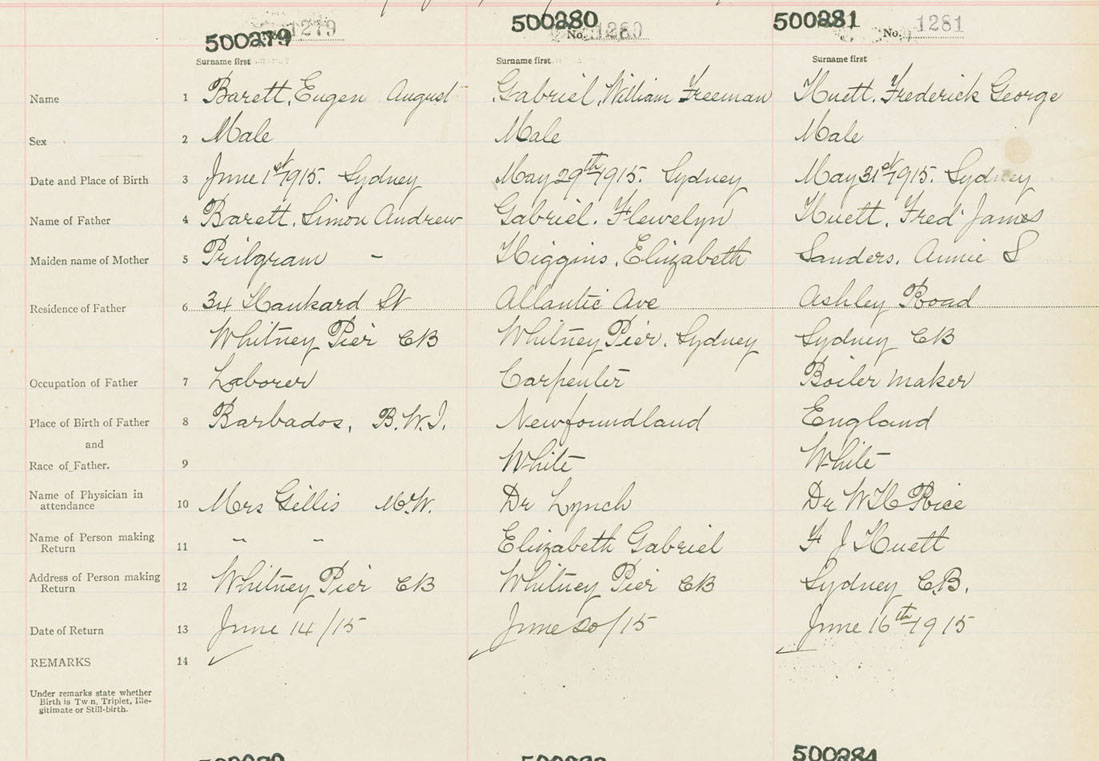 500279 1279 500280 No. 1280 500281 No. 1281
Surname first Surname first Surname first
Name 1 Barett, Eugen August Gabriel, William Freeman Huett, Frederick George
Sex 2 Male Male Male
Date and Place of Birth 3 June 1st 1915. Sydney May 29th 1915. Sydney May 31st 1915. Sydney
Name of Father 4 Barett, Simon Andrew Gabriel, Flewelyn Huett, Fred James
Maiden name of Mother 5 Prilgram - Higgins, Elizabeth Sanders, Annie S
Residence of Father 6 34 Hankard St Atlantic Ave Ashley Road
Whitney Pier CB Whitney Pier, Sydney Sydney CB
Occupation of Father 7 Laborer Carpenter Boiler maker
Place of Birth of Father 8 Barbados, B.W.I. Newfoundland England
and
Race of Father. 9 White White
Name of Physician in
attendance 10 Mrs Gillis M.W. Dr Lynch Dr W H Rice
Name of Person making
Return 11 " " Elizabeth Gabriel F J Huett
Address of Person making
Return 12 Whitney Pier CB Whitney Pier CB Sydney C.B.
Date of Return 13 June 14/15 June 20/15 June 16th 1915
REMARKS 14
Under remarks state whether
Birth is Twn, Triplet, Ille-
gitimate or Still-birth.
500284